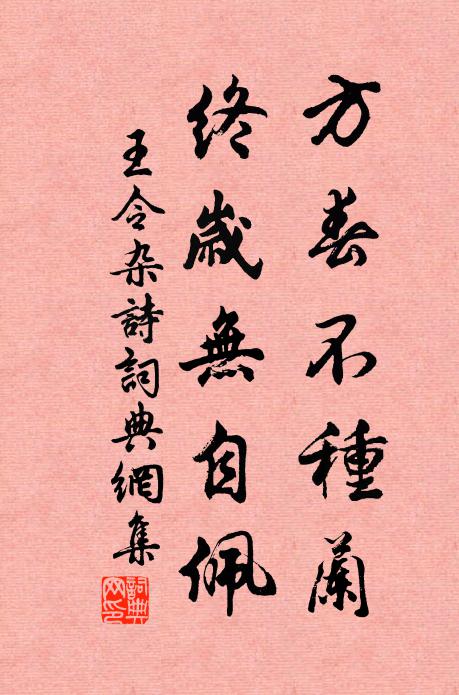 方春不種蘭
終歲無自佩
王令杂詩詞典網集
詞典网印